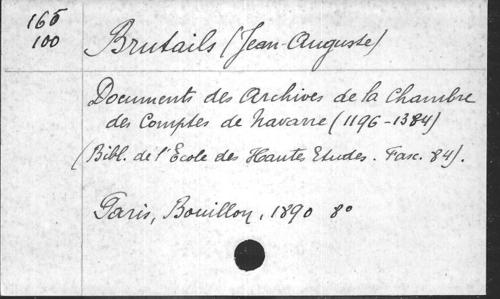 166
100
Brutails (Jean-Auguste)
Documents des Archives de la Chambre
des Comptes de Navarre (1196-1384)
(Bibl. de l'Ecole des Hautes Etudes. Fasc. 84).
Paris, Bouillon, 1890 8º